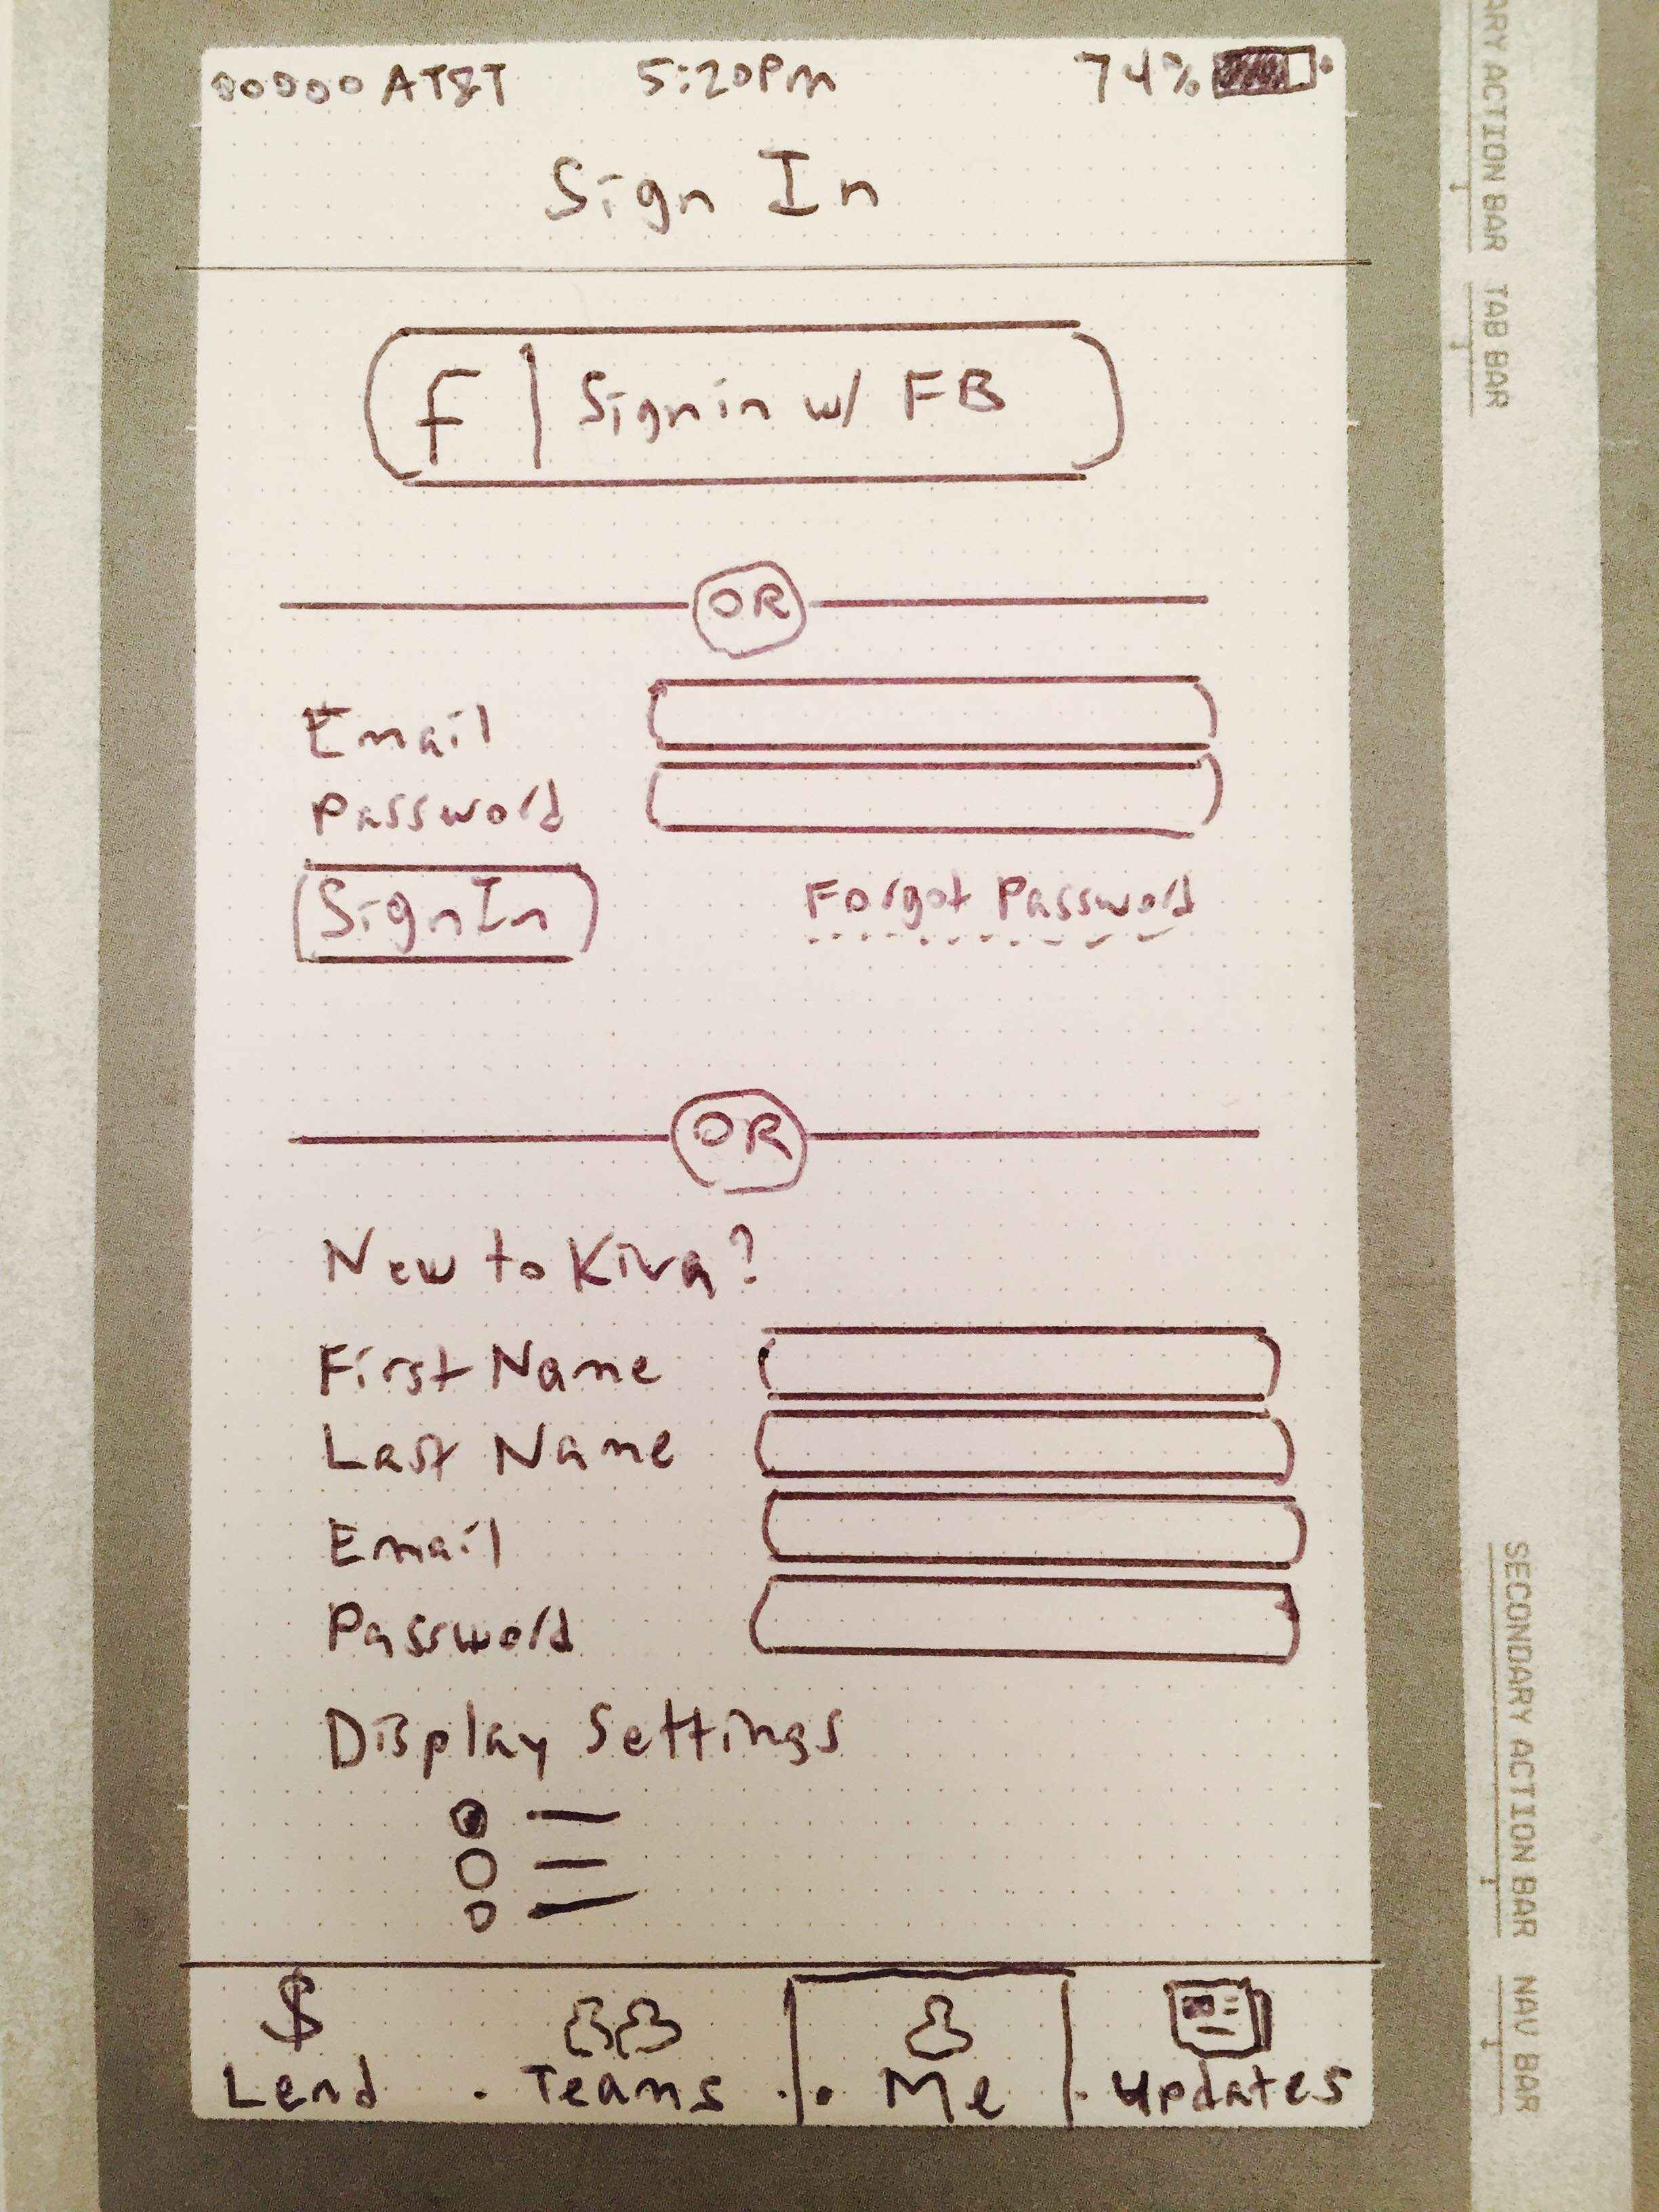 AT&T 5:20PM 74%
Sign In
f | Sign in w/ FB
OR
Email
Password
Sign In Forgot Password
OR
New to Kiva?
First Name
Last Name
Email
Password
Display Settings
$
Lend Teams Me Updates
ARY ACTION BAR TAB BAR
SECONDARY ACTION BAR NAV BAR